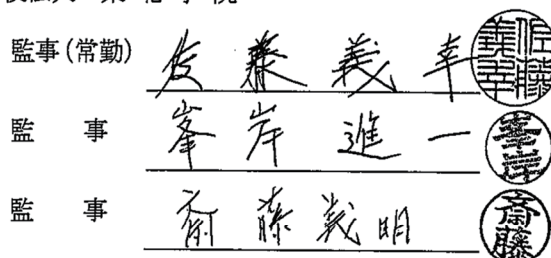 監事(常勤) 佐藤義幸 佐藤義幸
監 事 峯岸進一
監 事 斎藤義明 斎藤